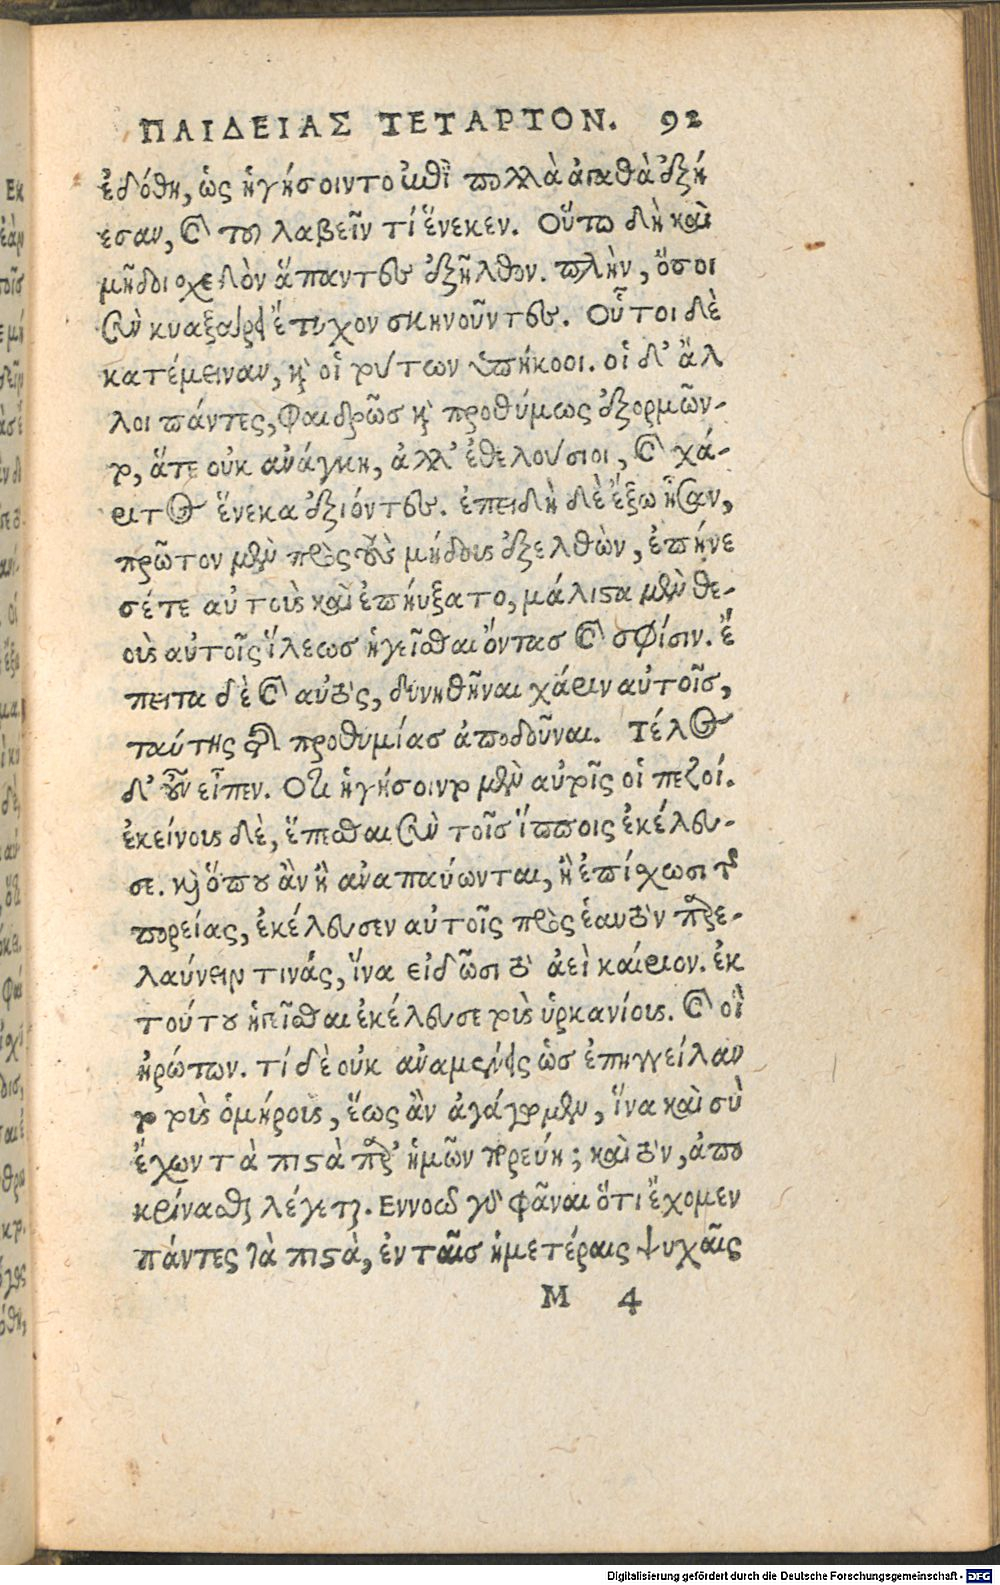 ΠΑΙΔΕΙΑΣ ΤΕΤΑΡΤΟΝ. 92
ἐδόθη, ὡς ἡγήσοιντο ἐπὶ πολλὰ ἀγαθὰ ἐξῄ
εσαν, καὶ τοῦ λαβεῖν τί ἕνεκεν. Οὕτω δὴ καὶ
μῆδοι σχεδὸν ἅπαντες ἐξῆλθον. πλὴν, ὅσοι
σὺν κυαξάρει ἔτυχον σκηνοῦντες. Οὗτοι δὲ
κατέμειναν, καὶ οἱ τούτων ὑπήκοοι. οἱ δ' ἄλ
λοι πάντες, φαιδρῶσ καὶ προθύμως ἐξορμῶν-
το, ἅτε οὐκ ἀνάγκη, ἀλλ' ἐθελούσιοι, καὶ χά-
ριτος ἕνεκα ἐξιόντες. ἐπειδὴ δὲ ἔξω ἦσαν,
πρῶτον μὲν πρὸς τοὺς μήδους ἐξελθὼν, ἐπῄνε
σέτε αὐτοὺς καὶ ἐπηύξατο, μάλιστα μὲν θε-
οὺς αὐτοῖς ἵλεωσ ἡγεῖσθαι ὄντασ καὶ σφίσιν. ἔ
πειτα δὲ καὶ αὐτὸς, δυνηθῆναι χάριν αὐτοῖσ,
ταύτης τῆς προθυμίασ ἀποδοῦναι. Τέλος
δ' οὖν εἶπεν. Οτι ἡγήσοιντο μὲν αὐτοῖς οἱ πεζοί.
ἐκείνους δὲ, ἕπεσθαι σὺν τοῖσ ἵπποις ἐκέλευ-
σε. καὶ ὅπου ἂν ἢ ἀναπαύωνται, ἢ ἐπίσχωσι τῆς
πορείας, ἐκέλευσεν αὐτοῖς πρὸς ἑαυτὸν παρε-
λαύνειν τινάς, ἵνα εἰδῶσι τὸ ἀεὶ καίριον. ἐκ
τούτου ἡγεῖσθαι ἐκέλευσε τοὺς ὑρκανίους. καὶ οἳ
ἠρώτων. τί δὲ οὐκ ἀναμένεις ὡσ ἐπηγγείλαν
το τοὺς ὁμήρους, ἕως ἂν ἀγάγωμεν, ἵνα καὶ σὺ
ἔχων τὰ πιστὰ παρ' ἡμῶν πορεύῃ; καὶ τὸν, ἀπο
κρίνασθαι λέγεται. Εννοῶ γὰρ φᾶναι ὅτι ἔχομεν
πάντες τὰ πιστὰ, ἐν ταῖσ ἡμετέραις ψυχαῖς
M 4
Digitalisierung gefördert durch die Deutsche Forschungsgemeinschaft - DFG